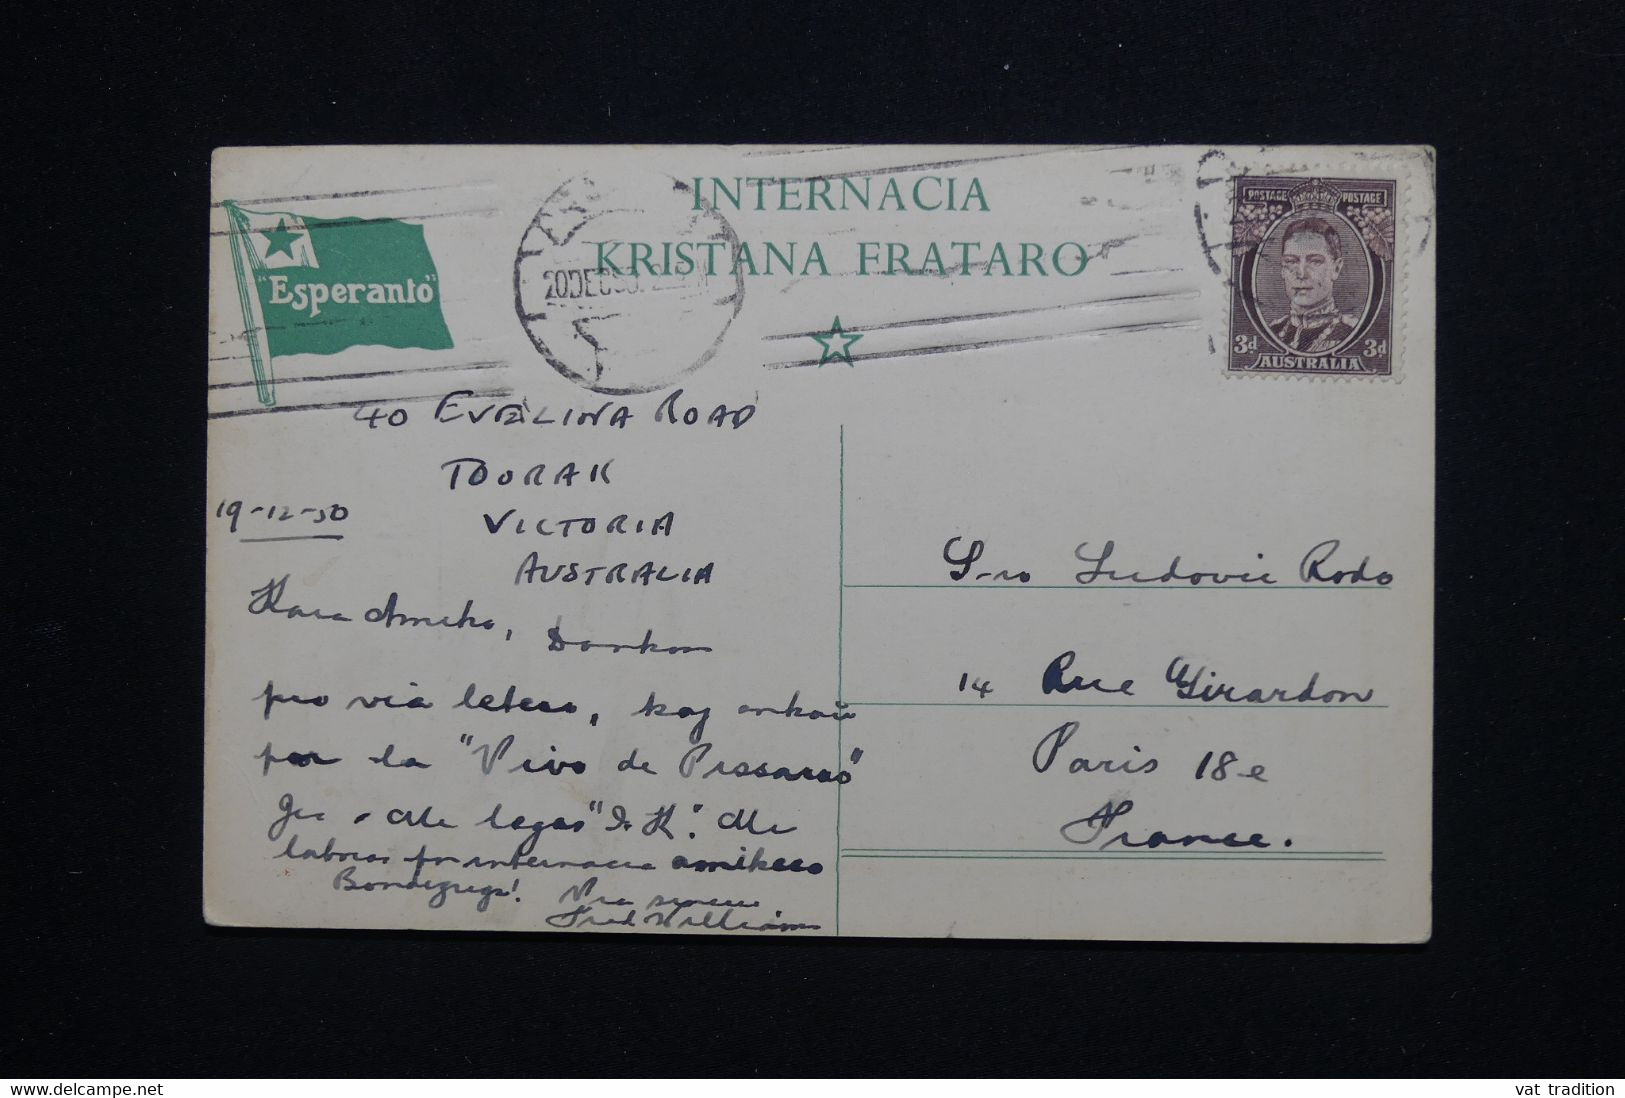 INTERNACIA
KRISTANA FRATARO
"Esperanto"
20 DEC 50
POSTAGE POSTAGE
3d AUSTRALIA 3d
40 EVELINA ROAD
TOORAK
VICTORIA
AUSTRALIA
19-12-50
Kara Amiko, Dankon
pro via letero, kaj ankaŭ
por la "Vivo de Pissarro"
Jes - Mi legas "I. K." Mi
laboras por internacia amikeco
Bondezirojn! Via sincere
Fred Williams
S-ro Ludovic Rodo
14 Rue Girardon
Paris 18e
France.
vat tradition
www.delcampe.net